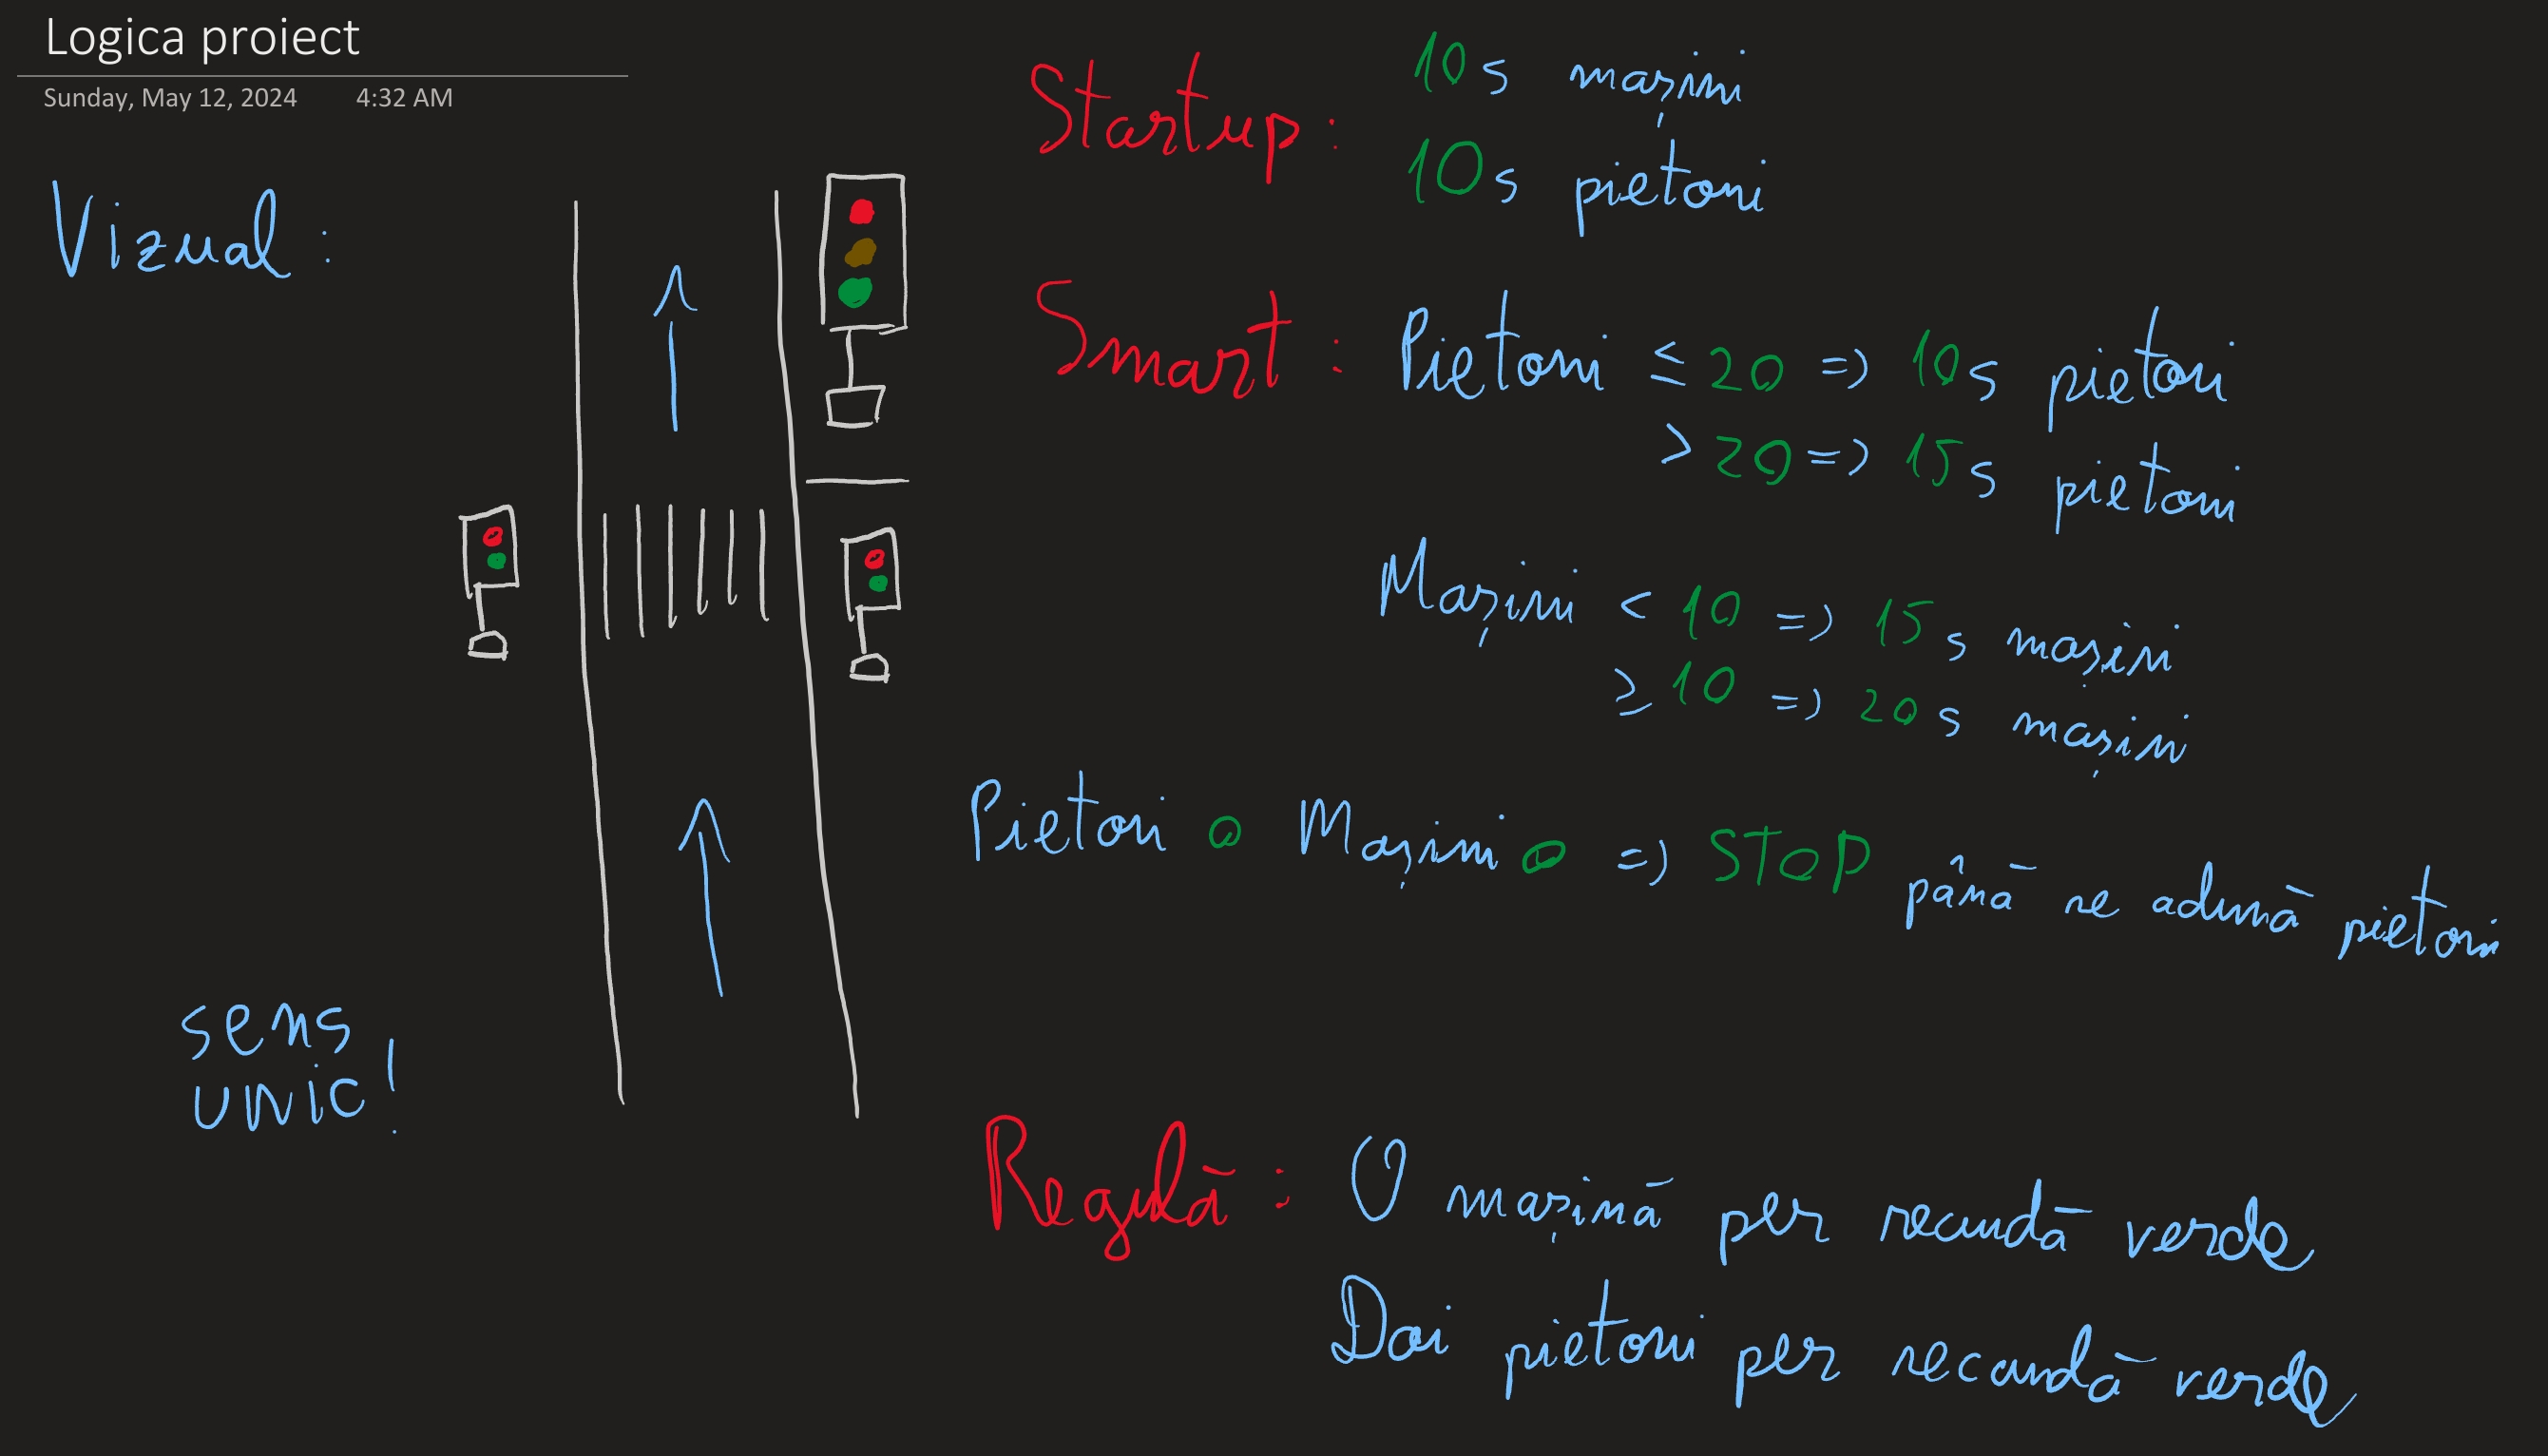 Logica proiect
Sunday, May 12, 2024 4:32 AM
Vizual :
sens
unic!
Startup : 10s mașini
10s pietoni
Smart : Pietoni ≤ 20 => 10s pietoni
> 20 => 15s pietoni
Mașini < 10 => 15s mașini
≥ 10 => 20s mașini
Pietoni 0 Mașini 0 => STOP până se adună pietoni
Regulă : O mașină per secundă verde
Doi pietoni per secundă verde